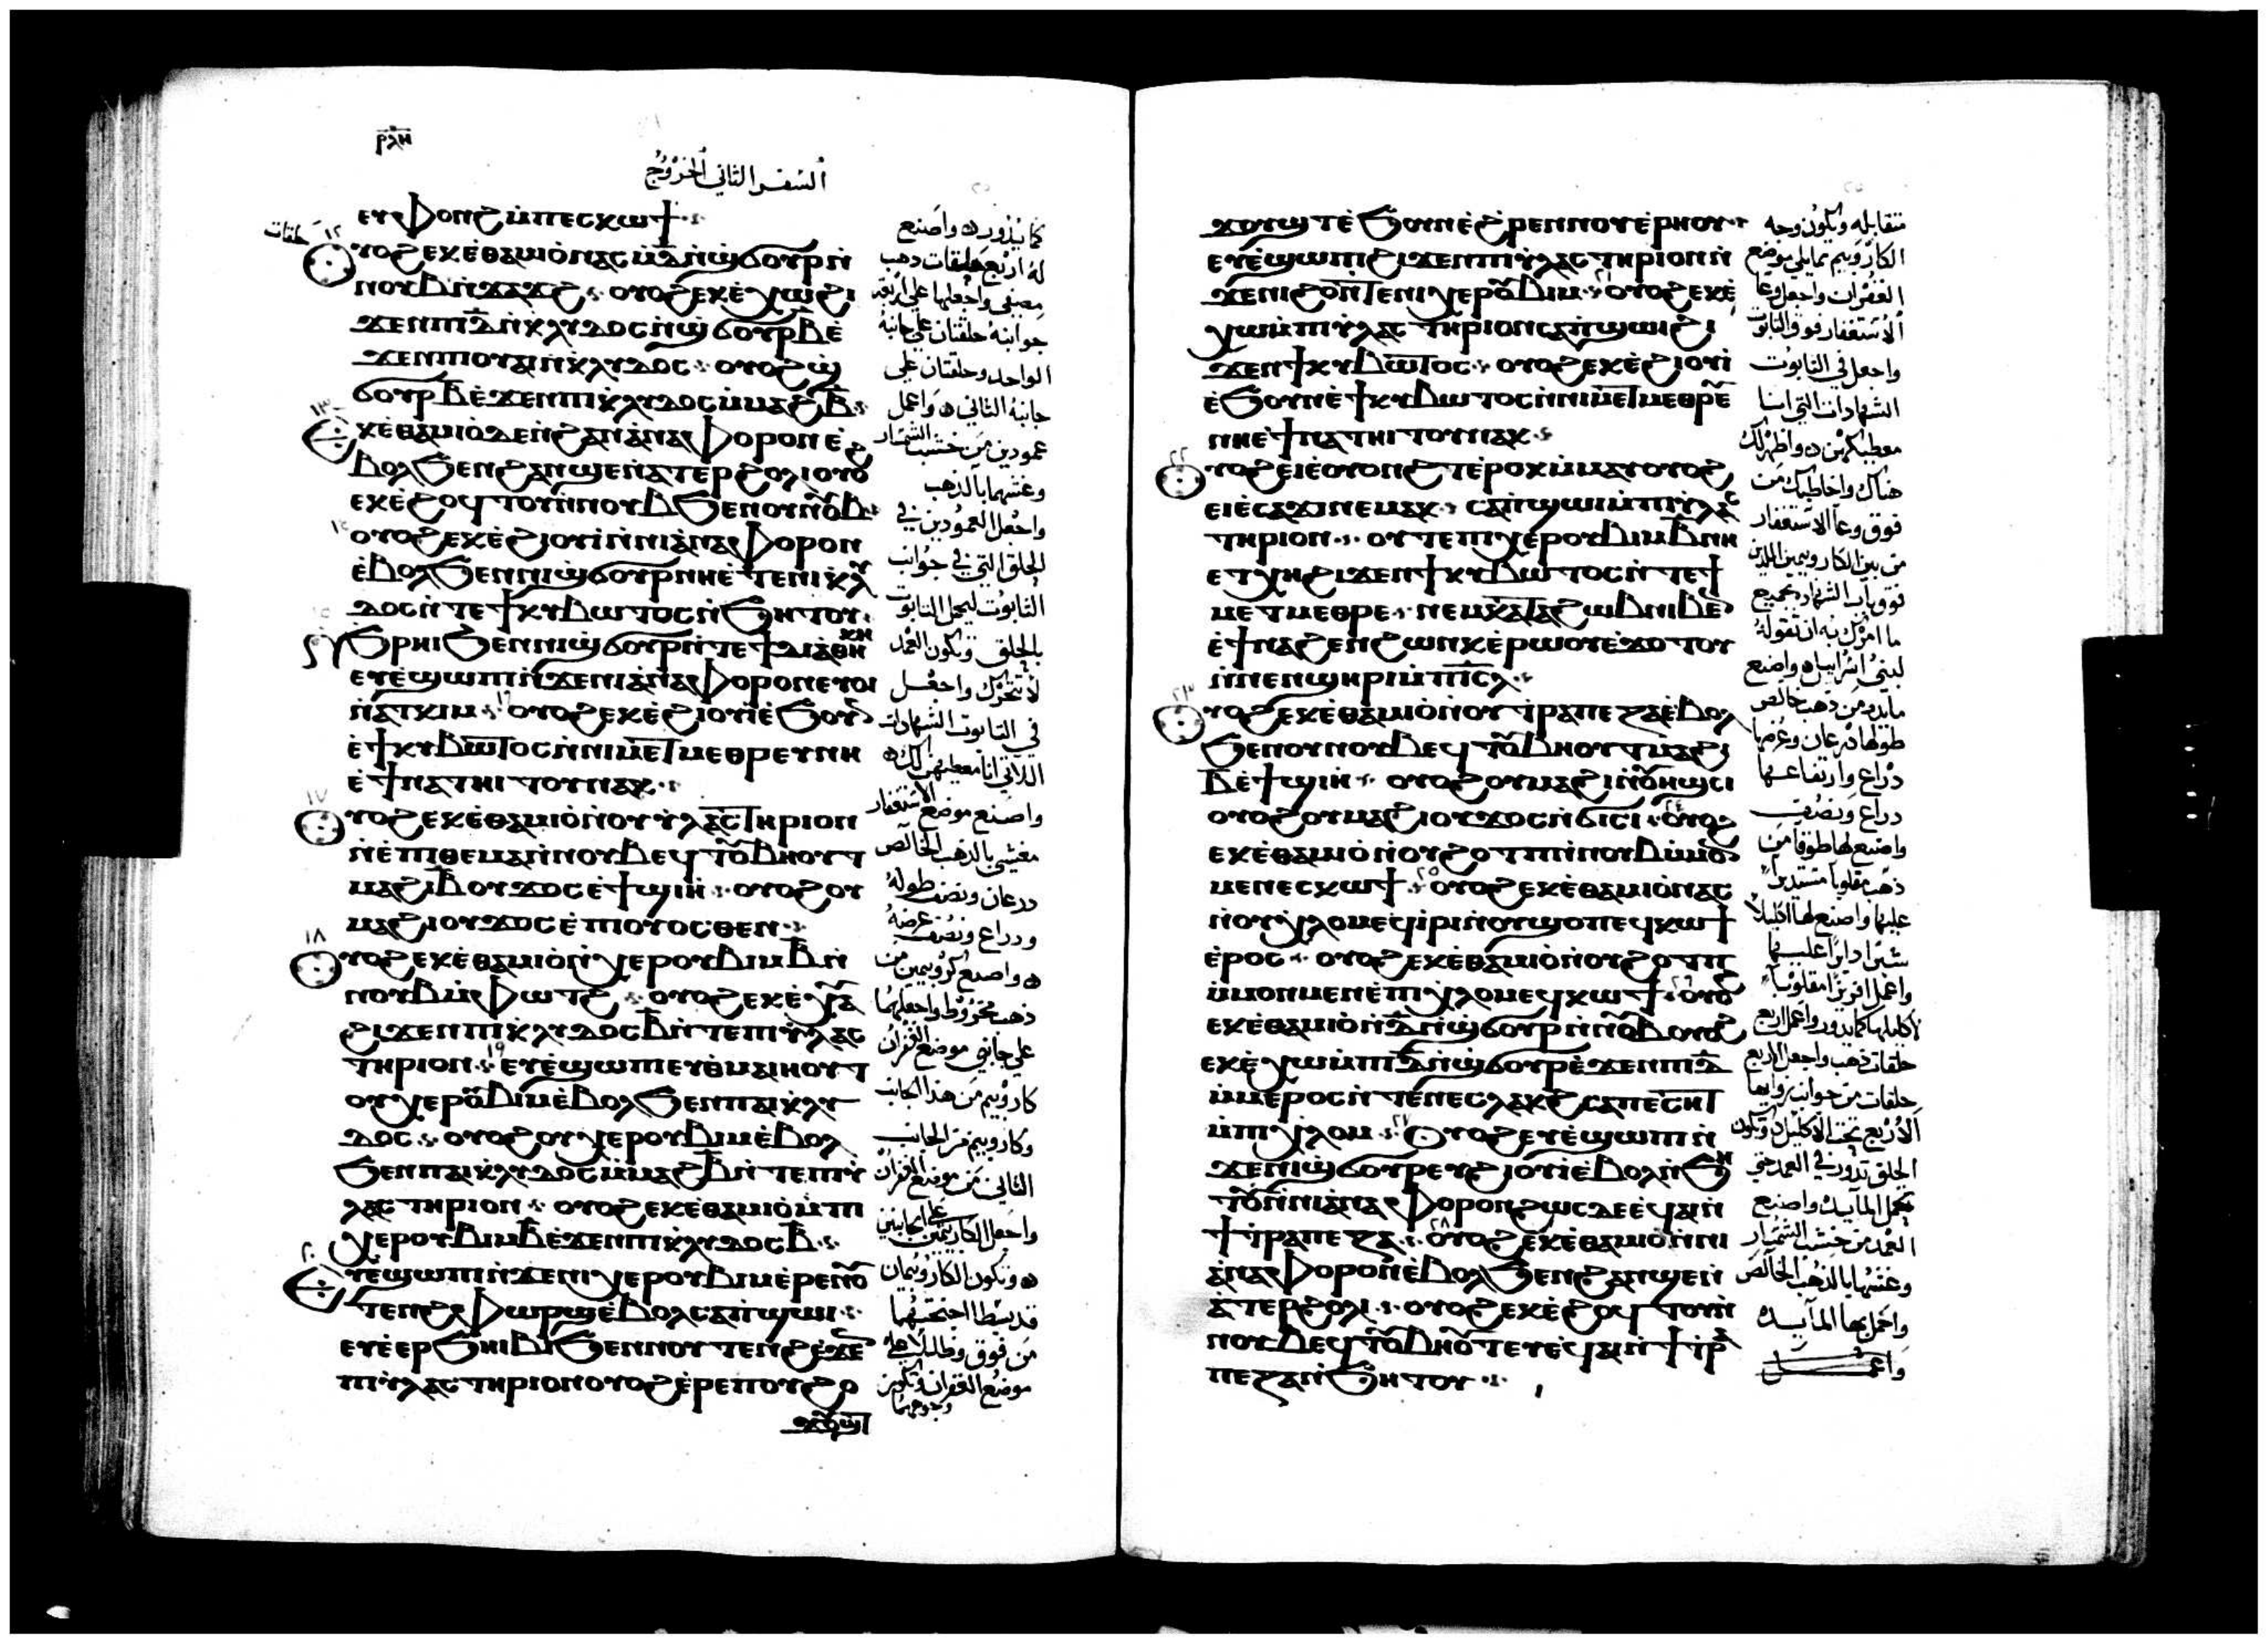 ⲣⲗⲏ
السفر الثاني الخروج
ⲉⲩⲫⲟⲛϩ ⲙ̀ⲡⲉⲥⲕⲱϯ
ⲟⲩⲟϩ ⲉⲕⲉ̀ⲑⲁⲙⲓⲟ̀ ⲛⲁⲥ ⲛ̀ⲇ̅ ⲛ̀ϣϭⲟⲩⲣ ⲛ̀
ⲛⲟⲩⲃ ⲛ̀ⲕⲁⲑⲁⲣ ⲟⲩⲟϩ ⲉⲕⲉ̀ⲭⲱ ϩⲓ
ϫⲉⲛ ⲡⲓⲇ̅ ⲛ̀ⲕⲗⲩⲇⲟⲥ ⲛ̀ϣϭⲟⲩⲣ ⲃ̅ ⲉ̀
ϫⲉⲛ ⲡⲓⲟⲩⲁⲓ ⲛ̀ⲕⲗⲩⲇⲟⲥ ⲟⲩⲟϩ ϣ̀
ϭⲟⲩⲣ ⲃ̅ ⲉ̀ϫⲉⲛ ⲡⲓⲕⲗⲩⲇⲟⲥ ⲙ̀ⲙⲁϩ ⲃ̅
ⲉⲕⲉ̀ⲑⲁⲙⲓⲟ̀ ⲇⲉ ⲛ̀ϩⲁⲛⲁ̀ⲛⲁⲫⲟⲣⲟⲛ ⲉ̀
ⲃⲟⲗ ϧⲉⲛ ϩⲁⲛϣⲉ ⲛ̀ⲁⲧⲉⲣϩⲟⲗⲓ ⲟⲩⲟϩ
ⲉⲕⲉ̀ϩⲟϥⲧⲟⲩ ⲛ̀ⲛⲟⲩⲃ ϧⲉⲛ ⲟⲩⲛⲟⲩⲃ
ⲟⲩⲟϩ ⲉⲕⲉ̀ϩⲓⲟⲩⲓ̀ ⲛ̀ⲛⲓⲁ̀ⲛⲁⲫⲟⲣⲟⲛ
ⲉ̀ⲃⲟⲗ ϧⲉⲛ ⲛⲓϣϭⲟⲩⲣ ⲛⲏⲉⲧⲉ ⲛⲓⲕⲗⲩ
ⲇⲟⲥ ⲛ̀ⲧⲉ ϯⲕⲩⲃⲱⲧⲟⲥ ⲛ̀ϧⲏⲧⲟⲩ
ϧⲣⲏⲓ ϧⲉⲛ ⲛⲓϣϭⲟⲩⲣ ⲛ̀ⲧⲉ ϯⲇⲓⲁ̀ⲑⲏⲕⲏ
ⲉⲩⲉ̀ϣⲱⲡⲓ ⲛ̀ϫⲉ ⲛⲓⲁ̀ⲛⲁⲫⲟⲣⲟⲛ ⲉⲩⲟⲓ
ⲛ̀ⲁⲧⲕⲓⲙ ⲟⲩⲟϩ ⲉⲕⲉ̀ϩⲓⲟⲩⲓ̀ ⲉ̀ϧⲟⲩⲛ
ⲉ̀ϯⲕⲩⲃⲱⲧⲟⲥ ⲛ̀ⲛⲓⲙⲉⲧⲙⲉⲑⲣⲉⲩ ⲛⲏ
ⲉ̀ϯⲛⲁⲧⲏⲓⲧⲟⲩ ⲛⲁⲕ
ⲟⲩⲟϩ ⲉⲕⲉ̀ⲑⲁⲙⲓⲟ̀ ⲛ̀ⲟⲩⲓ̀ⲗⲁⲥⲧⲏⲣⲓⲟⲛ
ⲛ̀ⲉ̀ⲡⲓⲑⲉⲙⲁ ⲛ̀ⲛⲟⲩⲃ ⲉϥⲧⲟⲩⲃⲏⲟⲩⲧ
ⲙⲁϩⲓ ⲃ̅ ⲟⲩϫⲟⲥ ⲉ̀ϯϣⲓⲏ ⲟⲩⲟϩ ⲟⲩ
ⲙⲁϩⲓ ⲟⲩϫⲟⲥ ⲉ̀ⲡⲓⲟⲩⲟⲥⲑⲉⲛ
ⲟⲩⲟϩ ⲉⲕⲉ̀ⲑⲁⲙⲓⲟ̀ ⲛ̀ⲭⲉⲣⲟⲩⲃⲓⲙ ⲃ̅ ⲛ̀
ⲛⲟⲩⲃ ⲙ̀ⲫⲱⲧϩ ⲟⲩⲟϩ ⲉⲕⲉ̀ⲭⲁⲩ
ϩⲓϫⲉⲛ ⲡⲓⲕⲗⲩⲇⲟⲥ ⲃ̅ ⲛ̀ⲧⲉ ⲡⲓⲓ̀ⲗⲁⲥ
ⲧⲏⲣⲓⲟⲛ ⲉⲩⲉ̀ϣⲱⲡⲓ ⲉⲩⲑⲙⲁⲓⲏⲟⲩⲧ
ⲟⲩⲭⲉⲣⲟⲩⲃⲓⲙ ⲉ̀ⲃⲟⲗ ϧⲉⲛ ⲡⲁⲓⲕⲗⲩ
ⲇⲟⲥ ⲟⲩⲟϩ ⲟⲩⲭⲉⲣⲟⲩⲃⲓⲙ ⲉ̀ⲃⲟⲗ
ϧⲉⲛ ⲡⲁⲓⲕⲗⲩⲇⲟⲥ ⲙ̀ⲙⲁϩ ⲃ̅ ⲛ̀ⲧⲉ ⲡⲓⲓ̀
ⲗⲁⲥⲧⲏⲣⲓⲟⲛ ⲟⲩⲟϩ ⲉⲕⲉ̀ⲑⲁⲙⲓⲟ̀ ⲙ̀ⲡⲓ
ⲭⲉⲣⲟⲩⲃⲓⲙ ⲃ̅ ⲉ̀ϫⲉⲛ ⲡⲓⲕⲗⲩⲇⲟⲥ ⲃ̅
ⲉⲩⲉ̀ϣⲱⲡⲓ ⲛ̀ϫⲉ ⲛⲓⲭⲉⲣⲟⲩⲃⲓⲙ ⲉ̀ⲣⲉ ⲛⲟⲩ
ⲧⲉⲛϩ ⲫⲱⲣϣ ⲉ̀ⲃⲟⲗ ⲥⲁⲡ̀ϣⲱⲓ
ⲉⲩⲉ̀ⲉⲣϧⲏⲓⲃⲓ ϧⲉⲛ ⲛⲟⲩⲧⲉⲛϩ ⲉ̀ϫⲉⲛ
ⲡⲓⲓ̀ⲗⲁⲥⲧⲏⲣⲓⲟⲛ ⲟⲩⲟϩ ⲉ̀ⲣⲉ ⲡⲟⲩϩⲟ
ϫⲟⲩϣⲧ
كما يدور واصنع
له اربع حلقات دهب
مصفى واجعلها على اربعة
جوانبه حلقتان على جانبه
الواحد وحلقتان على
جانبه الثاني واعمل
عمودين من خشب الشمشار
وغشهما بالدهب
واجعل العمودين في
الحلق التي في جوانب
التابوت ليحمل التابوت
بالحلق وتكون العمد
لا تتحرك واجعل
في التابوت الشهادات
اللاتي انا معطيهن لك
واصنع موضع الاستغفار
مغشى بالدهب الخالص
دراعان ونصف طوله
ودراع ونصف عرضه
واصنع كروبيمين من
دهب مخروط واجعلهما
على جانبي موضع الغفران
كاروبيم من هذا الجانب
وكاروبيم من الجانب
الثاني من موضع الغفران
واجعل الكاروبيمين على الجانبين
وتكون الكاروبيمان
قد بسطا اجنحتهما
من فوق وظللا على
موضع الغفران وتكون
وجوههما
ϫⲟⲩϣⲧ ⲉ̀ϧⲟⲩⲛ ⲉ̀ϩⲣⲉⲛ ⲛⲟⲩⲉ̀ⲣⲏⲟⲩ
ⲉⲩⲉ̀ϣⲱⲡⲓ ϩⲓϫⲉⲛ ⲡⲓⲓ̀ⲗⲁⲥⲧⲏⲣⲓⲟⲛ ⲛ̀
ϫⲉ ⲛⲓϩⲟ ⲛ̀ⲧⲉ ⲛⲓⲭⲉⲣⲟⲩⲃⲓⲙ ⲟⲩⲟϩ ⲉⲕⲉ̀
ⲭⲱ ⲙ̀ⲡⲓⲓ̀ⲗⲁⲥⲧⲏⲣⲓⲟⲛ ⲥⲁⲡ̀ϣⲱⲓ ϩⲓ
ϫⲉⲛ ϯⲕⲩⲃⲱⲧⲟⲥ ⲟⲩⲟϩ ⲉⲕⲉ̀ϩⲓⲟⲩⲓ̀
ⲉ̀ϧⲟⲩⲛ ⲉ̀ϯⲕⲩⲃⲱⲧⲟⲥ ⲛ̀ⲛⲓⲙⲉⲧⲙⲉⲑⲣⲉ
ⲛⲏⲉ̀ϯⲛⲁⲧⲏⲓⲧⲟⲩ ⲛⲁⲕ
ⲟⲩⲟϩ ⲉⲓⲉ̀ⲟⲩⲟⲛϩⲧ ⲉ̀ⲣⲟⲕ ⲙ̀ⲙⲁⲩ ⲟⲩⲟϩ
ⲉⲓⲉ̀ⲥⲁϫⲓ ⲛⲉⲙⲁⲕ ⲥⲁⲡ̀ϣⲱⲓ ⲙ̀ⲡⲓⲓ̀ⲗⲁⲥ
ⲧⲏⲣⲓⲟⲛ ⲟⲩⲧⲉ ⲡⲓⲭⲉⲣⲟⲩⲃⲓⲙ ⲃ̅ ⲛⲏ
ⲉⲧⲭⲏ ϩⲓϫⲉⲛ ϯⲕⲩⲃⲱⲧⲟⲥ ⲛ̀ⲧⲉ ϯ
ⲙⲉⲧⲙⲉⲑⲣⲉ ⲛⲉⲙ ⲕⲁⲧⲁ ϩⲱⲃ ⲛⲓⲃⲉⲛ
ⲉ̀ϯⲛⲁϩⲉⲛϩⲱⲛⲕ ⲉ̀ⲣⲱⲟⲩ ⲉ̀ϫⲟⲧⲟⲩ
ⲛ̀ⲛⲉⲛϣⲏⲣⲓ ⲙ̀ⲡⲓⲥⲗ
ⲟⲩⲟϩ ⲉⲕⲉ̀ⲑⲁⲙⲓⲟ̀ ⲛ̀ⲟⲩⲧ̀ⲣⲁⲡⲉⲍⲁ ⲉ̀ⲃⲟⲗ
ϧⲉⲛ ⲟⲩⲛⲟⲩⲃ ⲉϥⲧⲟⲩⲃⲏⲟⲩⲧ ⲙⲁϩⲓ
ⲃ̅ ⲉ̀ϯϣⲓⲏ ⲟⲩⲟϩ ⲟⲩⲙⲁϩⲓ ⲛ̀ⲟⲩⲏϣⲥⲓ
ⲟⲩⲟϩ ⲟⲩⲙⲁϩⲓ ⲟⲩϫⲟⲥ ⲛ̀ϭⲓⲥⲓ ⲟⲩⲟϩ
ⲉⲕⲉ̀ⲑⲁⲙⲓⲟ̀ ⲛ̀ⲟⲩϩⲟⲧⲡⲓ ⲛ̀ⲛⲟⲩⲃ ⲙ̀ⲙⲟⲛ
ⲙⲉⲛ ⲉⲥⲕⲱϯ ⲟⲩⲟϩ ⲉⲕⲉ̀ⲑⲁⲙⲓⲟ̀ ⲛⲁⲥ
ⲛ̀ⲟⲩⲭ̀ⲗⲟⲙ ⲉϥⲓ̀ⲣⲓ ⲛ̀ⲟⲩϣⲟⲡ ⲉϥⲕⲱϯ
ⲉ̀ⲣⲟⲥ ⲟⲩⲟϩ ⲉⲕⲉ̀ⲑⲁⲙⲓⲟ̀ ⲛ̀ⲟⲩϩⲟⲧⲡ
ⲙ̀ⲙⲟⲛⲙⲉⲛ ⲉ̀ⲡⲓⲭ̀ⲗⲟⲙ ⲉϥⲕⲱϯ ⲟⲩⲟϩ
ⲉⲕⲉ̀ⲑⲁⲙⲓⲟ̀ ⲛ̀ⲇ̅ ⲛ̀ϣϭⲟⲩⲣ ⲛ̀ⲛⲟⲩⲃ ⲟⲩⲟϩ
ⲉⲕⲉ̀ⲭⲱ ⲙ̀ⲡⲓⲇ̅ ⲛ̀ϣϭⲟⲩⲣ ⲉ̀ϫⲉⲛ ⲡⲓⲇ̅
ⲙ̀ⲙⲉⲣⲟⲥ ⲛ̀ⲧⲉ ⲛⲉⲥⲗⲁⲕϩ ⲥⲁⲡⲉⲥⲏⲧ
ⲙ̀ⲡⲓⲭ̀ⲗⲟⲙ ⲟⲩⲟϩ ⲉⲩⲉ̀ϣⲱⲡⲓ ⲛ̀
ϫⲉ ⲛⲓϣϭⲟⲩⲣ ⲉⲩϩⲓⲟⲩⲓ̀ ⲉ̀ⲃⲟⲗ ⲛ̀ϧⲏ
ⲧⲟⲩ ⲛ̀ⲛⲓⲁ̀ⲛⲁⲫⲟⲣⲟⲛ ϩⲱⲥⲇⲉ ⲉ̀ϥⲁⲓ ⲛ̀
ϯⲧ̀ⲣⲁⲡⲉⲍⲁ ⲟⲩⲟϩ ⲉⲕⲉ̀ⲑⲁⲙⲓⲟ̀ ⲛ̀ⲛⲓ
ⲁ̀ⲛⲁⲫⲟⲣⲟⲛ ⲉ̀ⲃⲟⲗ ϧⲉⲛ ϩⲁⲛϣⲉ ⲛ̀
ⲁ̀ⲧⲉⲣϩⲟⲗⲓ ⲟⲩⲟϩ ⲉⲕⲉ̀ϩⲟϥⲧⲟⲩ ⲛ̀
ⲛⲟⲩⲃ ⲉϥⲧⲟⲩⲃⲏⲟⲩⲧ ⲉⲩⲉ̀ϥⲁⲓ ⲛ̀ϯⲧ̀ⲣⲁ
ⲡⲉⲍⲁ ⲛ̀ϧⲏⲧⲟⲩ
متقابله ويكون وجه
الكاروبيم مما يلي موضع
الغفران واجعل وعا
الاستغفار فوق التابوت
واجعل في التابوت
الشهادات التي انا
معطيكهن واظهر لك
هناك واخاطبك من
فوق وعا الاستغفار
من بين الكاروبيمين اللذين
فوق تابوت الشهادة بجميع
ما امرك به ان تقوله
لبني اسراييل واصنع
مايده من دهب خالص
طولها دراعان وعرضها
دراع وارتفاعها
دراع ونصف
واصنع لها طوقا من
دهب مقلوبا مستديرا
عليها واصنع لها اكليلا
شبرا دايرا عليها
واعمل افريزا مقلوبا
لاكليلها كما يدور واعمل اربع
حلقات دهب واجعل الاربع
حلقات من جوانب زواياها
الاربع تحت الاكليل وتكون
الحلق تدور في العمد حتى
تحمل المايده واصنع
العمد من خشب الشمشار
وغشها بالدهب الخالص
واحمل بها المايده
واعمل